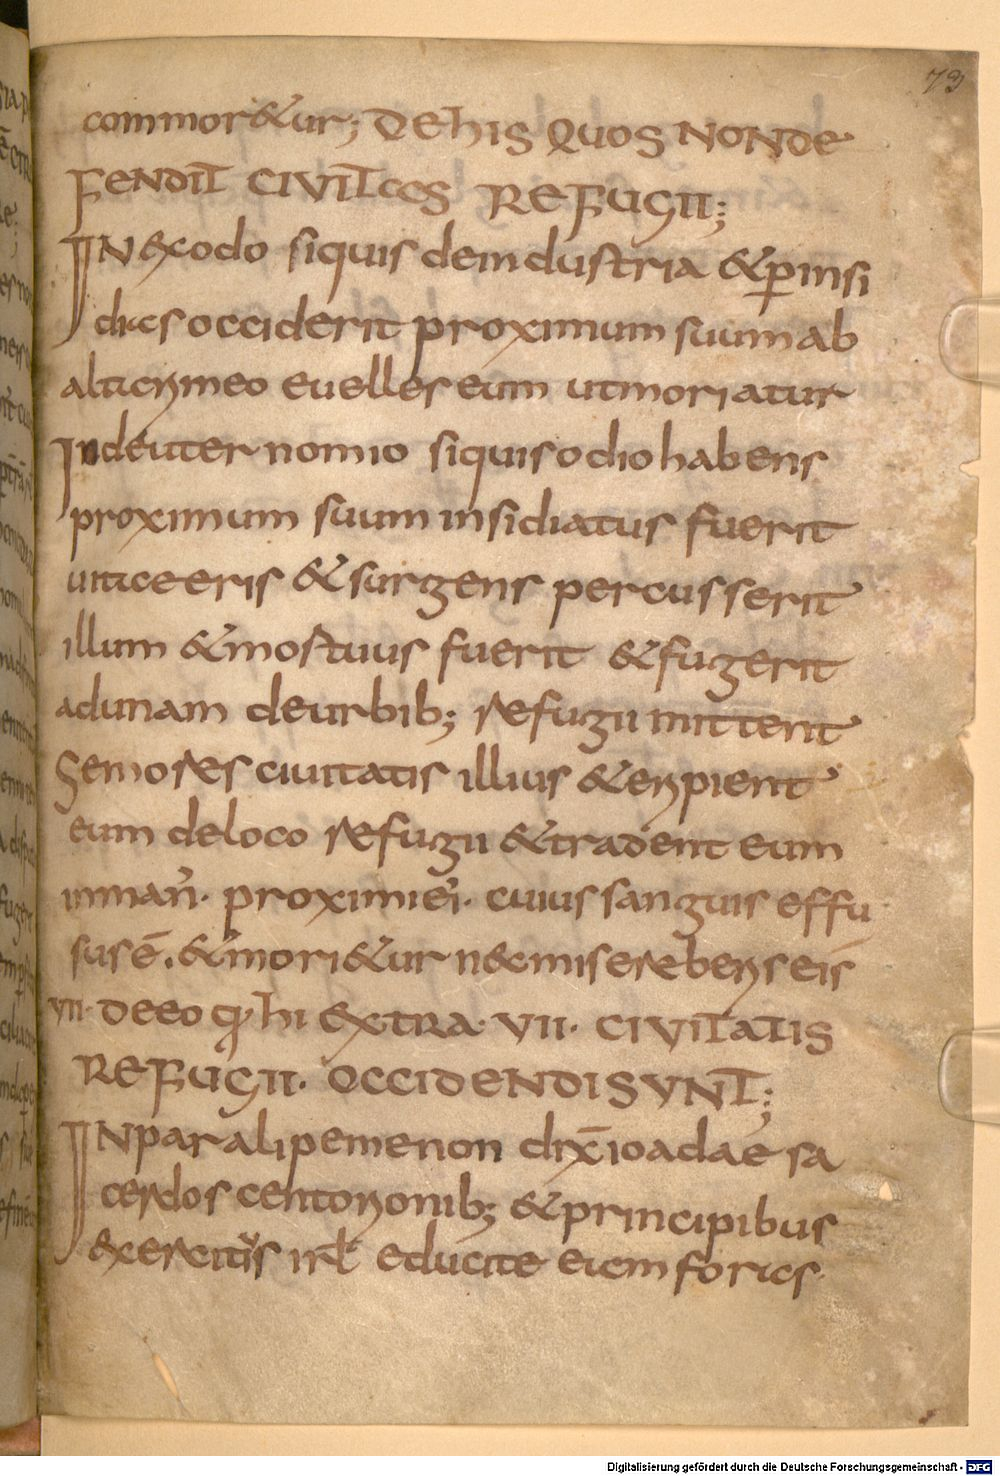 73
commor&ur; De his quos non de
fendit civitas refugii;
In exodo siquis de industria & p̄ insi
dias occiderit proximum suum ab
altari meo euelles eum ut moriatur
In deuternomio siquis odio habens
proximum suum insidiatus fuerit
uitae eius & surgens percusserit
illum & mortuus fuerit & fugerit
ad unam de urbib; refugii mittent
Seniores ciuitatis illius & eripient
eum de loco refugii & tradent eum
in man̄. proximi ei. cuius sanguis effu
sus ē. & mori&ur nec misereberis eis
VII. De eo q hi extra. VII. civitatis
refugii. occidendi sunt;
In paralipemenon dix̄ ioadae sa
cerdos centorionib; & principibus
exercitus irl educite eiem foras.
Digitalisierung gefördert durch die Deutsche Forschungsgemeinschaft - DFG